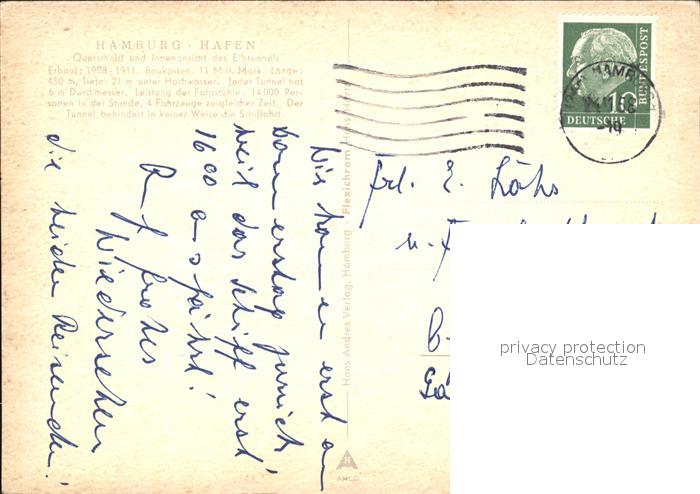 HAMBURG - HAFEN
Querschnitt und Innenansicht des Elbtunnels
Erbaut: 1908-1911. Baukosten: 11 Mill. Mark. Länge:
450 m, Tiefe: 21 m unter Hochwasser. Jeder Tunnel hat
6 m Durchmesser. Leistung der Fahrstühle: 14000 Per-
sonen in der Stunde, 4 Fahrzeuge zugleicher Zeit. Der
Tunnel behindert in keiner Weise die Schiffahrt.
Wir kommen erst am
Donnerstag zurück
weil das Schiff erst
16 00 ausfährt!
Auf frohes
Wiedersehen
die beiden Reisenden!
Hans Andres Verlag, Hamburg Flexichrom
ANCO
HAMB
10
DEUTSCHE
BUNDESPOST
Frl. E. Löhs
privacy protection
Datenschutz